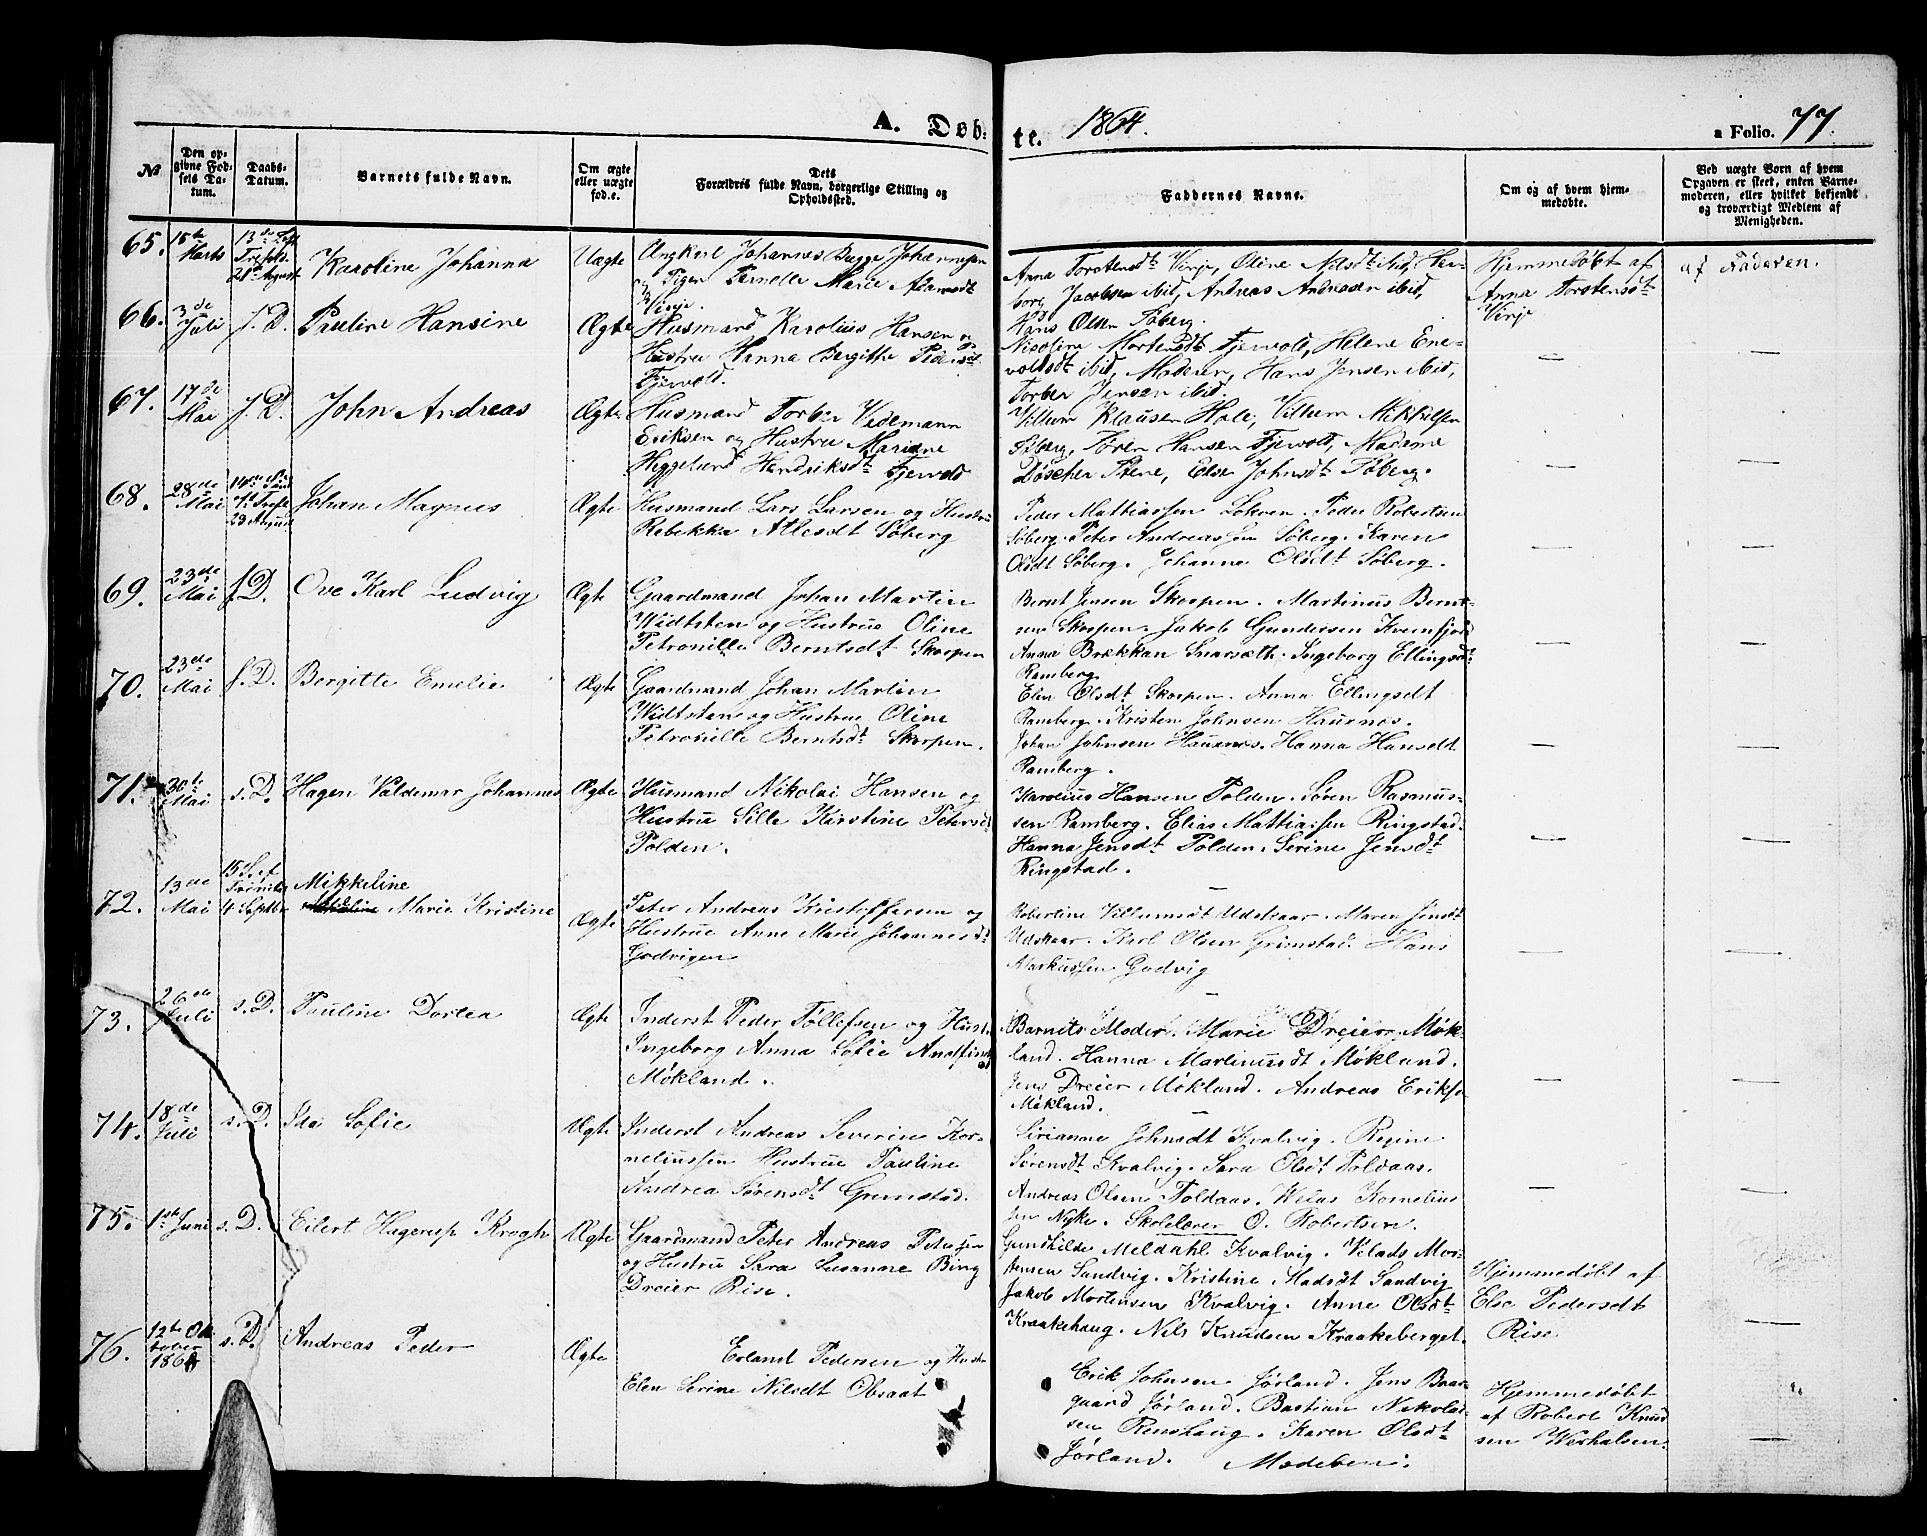 A. Døb-
te. 1864. a Folio. 77.
№
Den op-
givne Fød-
sels Da-
tum.
Daabs-
Datum.
Barnets fulde Navn.
Om ægte
eller uægte
fød.e.
Dets
Forældres fulde Navn, borgerlige Stilling og
Opholdssted.
Faddernes Navne.
Om og af hvem hjem-
medøbte.
Ved uægte Børn af hvem
Opgaven er skeet, enten Barne-
moderen, eller hvilket bekjendt
og troværdigt Medlem af
Menigheden.
65.
Marts
28de August
Karoline Johanna
Uægte
Ungkarl Johannes Bugge Johannesen
og Pigen Pernelle Marie Adamsdt
Vinje
Anna Torstensdt Vinje, Oline Nilsdt ibid,
Jacobsen ibid, Andreas Andreasen ibid,
Hans Olsen Søberg.
Hjemmedøbt af
Anna Torstensdt
Vinje
af Faderen.
66.
3de
Juli
s. D.
Pauline Hansine
Ægte
Husmand Karolius Hansen og
Hustru Hanna Bergitthe Pedersdt
Fjervold.
Nicoline Mortensdt Fjervold, Helene Ene-
voldsdt ibid, Moderen, Hans Jensen ibid,
Torber Jensen ibid.
67.
17de
Mai
s. D.
John Andreas
Ægte
Husmand Torber Vedemann
Eriksen og Hustru Mariane
Heggelund Hendriksdt Fjervold
Villum Klausen Hole, Villum Mikkelsen
Søberg, Søren Hansen Fjervold, Madame
Døscher Stene, Else Johnsdt Søberg.
68.
28de
Mai
Johan Magnus
Ægte
Husmand Lars Larsen og Hustru
Rebekka Atlesdt Søberg
Peder Mattiassen Lokven. Peder Robertsen
Søberg. Peter Andreassen Søberg. Karen
Olsdt Søberg. Johanne Olsdt Søberg.
69.
23de
Mai
s. D.
Ove Karl Ludvig
Ægte
Gaardmand Johan Martin
Widtsten og Hustrue Oline
Petronille Berntsdt Skorpen
Bernt Jensen Skorpen. Martinus Bernt-
sen Skorpen. Jakob Gundersen Kvernfjord
Anna Brækkan Snarsæth. Ingeborg Ellingsdt
Ramberg
70.
23de
Mai
s. D.
Bergitte Emelie
Ægte
Gaardmand Johan Martin
Widtsten og Hustrue Oline
Petronille Berntsdt Skorpen.
Elen Olsdt Skorpen. Anna Ellingsdt
Ramberg. Kristen Johnsen Haunes.
Johan Johnsen Haunes. Hanna Hansdt
Ramberg.
71.
30te
Mai
s. D.
Hagen Valdemar Johannes
Ægte
Husmand Nikolai Hansen og
Hustru Sille Kirstine Petersdt
Polden.
Karolius Hansen Polden. Søren Rasmus-
sen Ramberg. Elias Mattiassen Ringstad.
Hanna Jensdt Polden. Serine Jensdt
Ringstad.
72.
13de
Mai
4 Septbr
Mikkeline
Marie Kristine
Ægte
Peter Andreas Kristoffersen og
Hustrue Anne Marie Johannesdt
Godvigen
Robertine Villumsdt Udskaar. Maren Jensdt
Udskaar. Karl Olsen Grimstad. Hans
Markussen Godvig
73.
26de
Juli
s. D.
Pauline Dortea
Ægte
Inderst Peder Tøllefsen og Hust.
Ingeborg Anna Sofie
Møkland.
Barnets Moder. Marie Dreier Møk-
land. Hanna Martinusdt Møkland.
Jens Dreier Møkland. Andreas Eriks.
Møkland.
74.
18de
Juli
s. D.
Ida Sofie
Ægte
Inderst Andreas Severin Kor-
neliussen Hustrue Pauline
Andrea Sørensdt Grimstad.
Sirianne Johnsdt Kvalvig. Regine
Sørensdt Kvalvig. Sara Olsdt Poldaas.
Andreas Olsen Poldaas. Kornelius
sen Nyke. Skolelærer O. Robertsen.
75.
1ste Juni
s. D.
Eilert Hagerup Krogh
Ægte
Gaardmand Peter Andreas Petersen
og Hustru Sara Susanne Bing
Dreier Rise.
Gundhilde Meldahl Kvalvig. Mor-
tensen Sandvig. Kristine Madsdt Sandvig
Jakob Mortensen Kvalvig. Anne Olsdt
Kraakehaug. Nils Knudsen Kraakeberget.
Hjemmedøbt af
Else Pedersdt
Rise
76.
12te Ok
tober
186
s. D.
Andreas Peder
Ægte
Erland Pedersen og Hustr
Elen Serine Nilsdt Obsaat
Erik Johnsen Jørland. Jens Baar-
gaard Jørland. Bastian Nikolai-
sen Renshaug. Karen Olsdt
Jørland. Moderen.
Hjemmedøbt
af Robert Knud
sen Werhalsen.